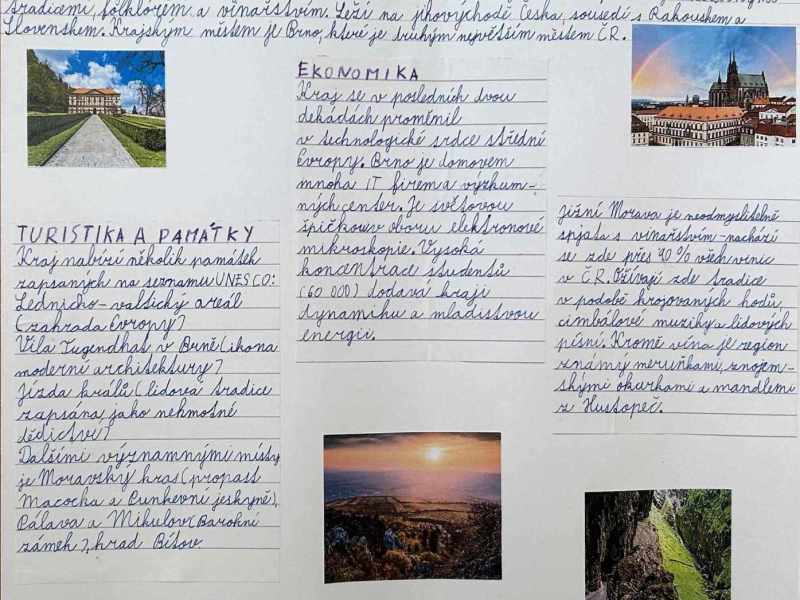 tradicemi, folklórem a vinařstvím. Leží na jihovýchodě Česka, sousedí s Rakouskem a
Slovenskem. Krajským místem je Brno, které je druhým největším městem ČR.
TURISTIKA A PAMÁTKY
Kraj nabízí několik památek
zapsaných na seznamu UNESCO:
Lednicko-valtický areál
(zahrada Evropy)
Vila Tugendhat v Brně (ikona
moderní architektury)
Jízda králů (lidová tradice
zapsána jako nehmotné
dědictví)
Dalšími významnými místy
je Moravský kras (propast
Macocha a Punkevní jeskyně),
Pálava a Mikulov (Barokní
zámek), hrad Bítov.
EKONOMIKA
Kraj se v posledních dvou
dekádách proměnil
v technologické srdce střední
Evropy. Brno je domovem
mnoha IT firem a výzkum-
ných center. Je světovou
špičkou v oboru elektronové
mikroskopie. Vysoká
koncentrace studentů
(60 000) dodává kraji
dynamiku a mladistvou
energii.
Jižní Morava je neodmyslitelně
spjata s vinařstvím - nachází
se zde přes 90% všech vinic
v ČR. Ožívají zde tradice
v podobě krojovaných hodů,
cimbálové muziky a lidových
písní. Kromě vína je region
známý meruňkami, znojem-
skými okurkami a mandlemi
z Hustopeč.